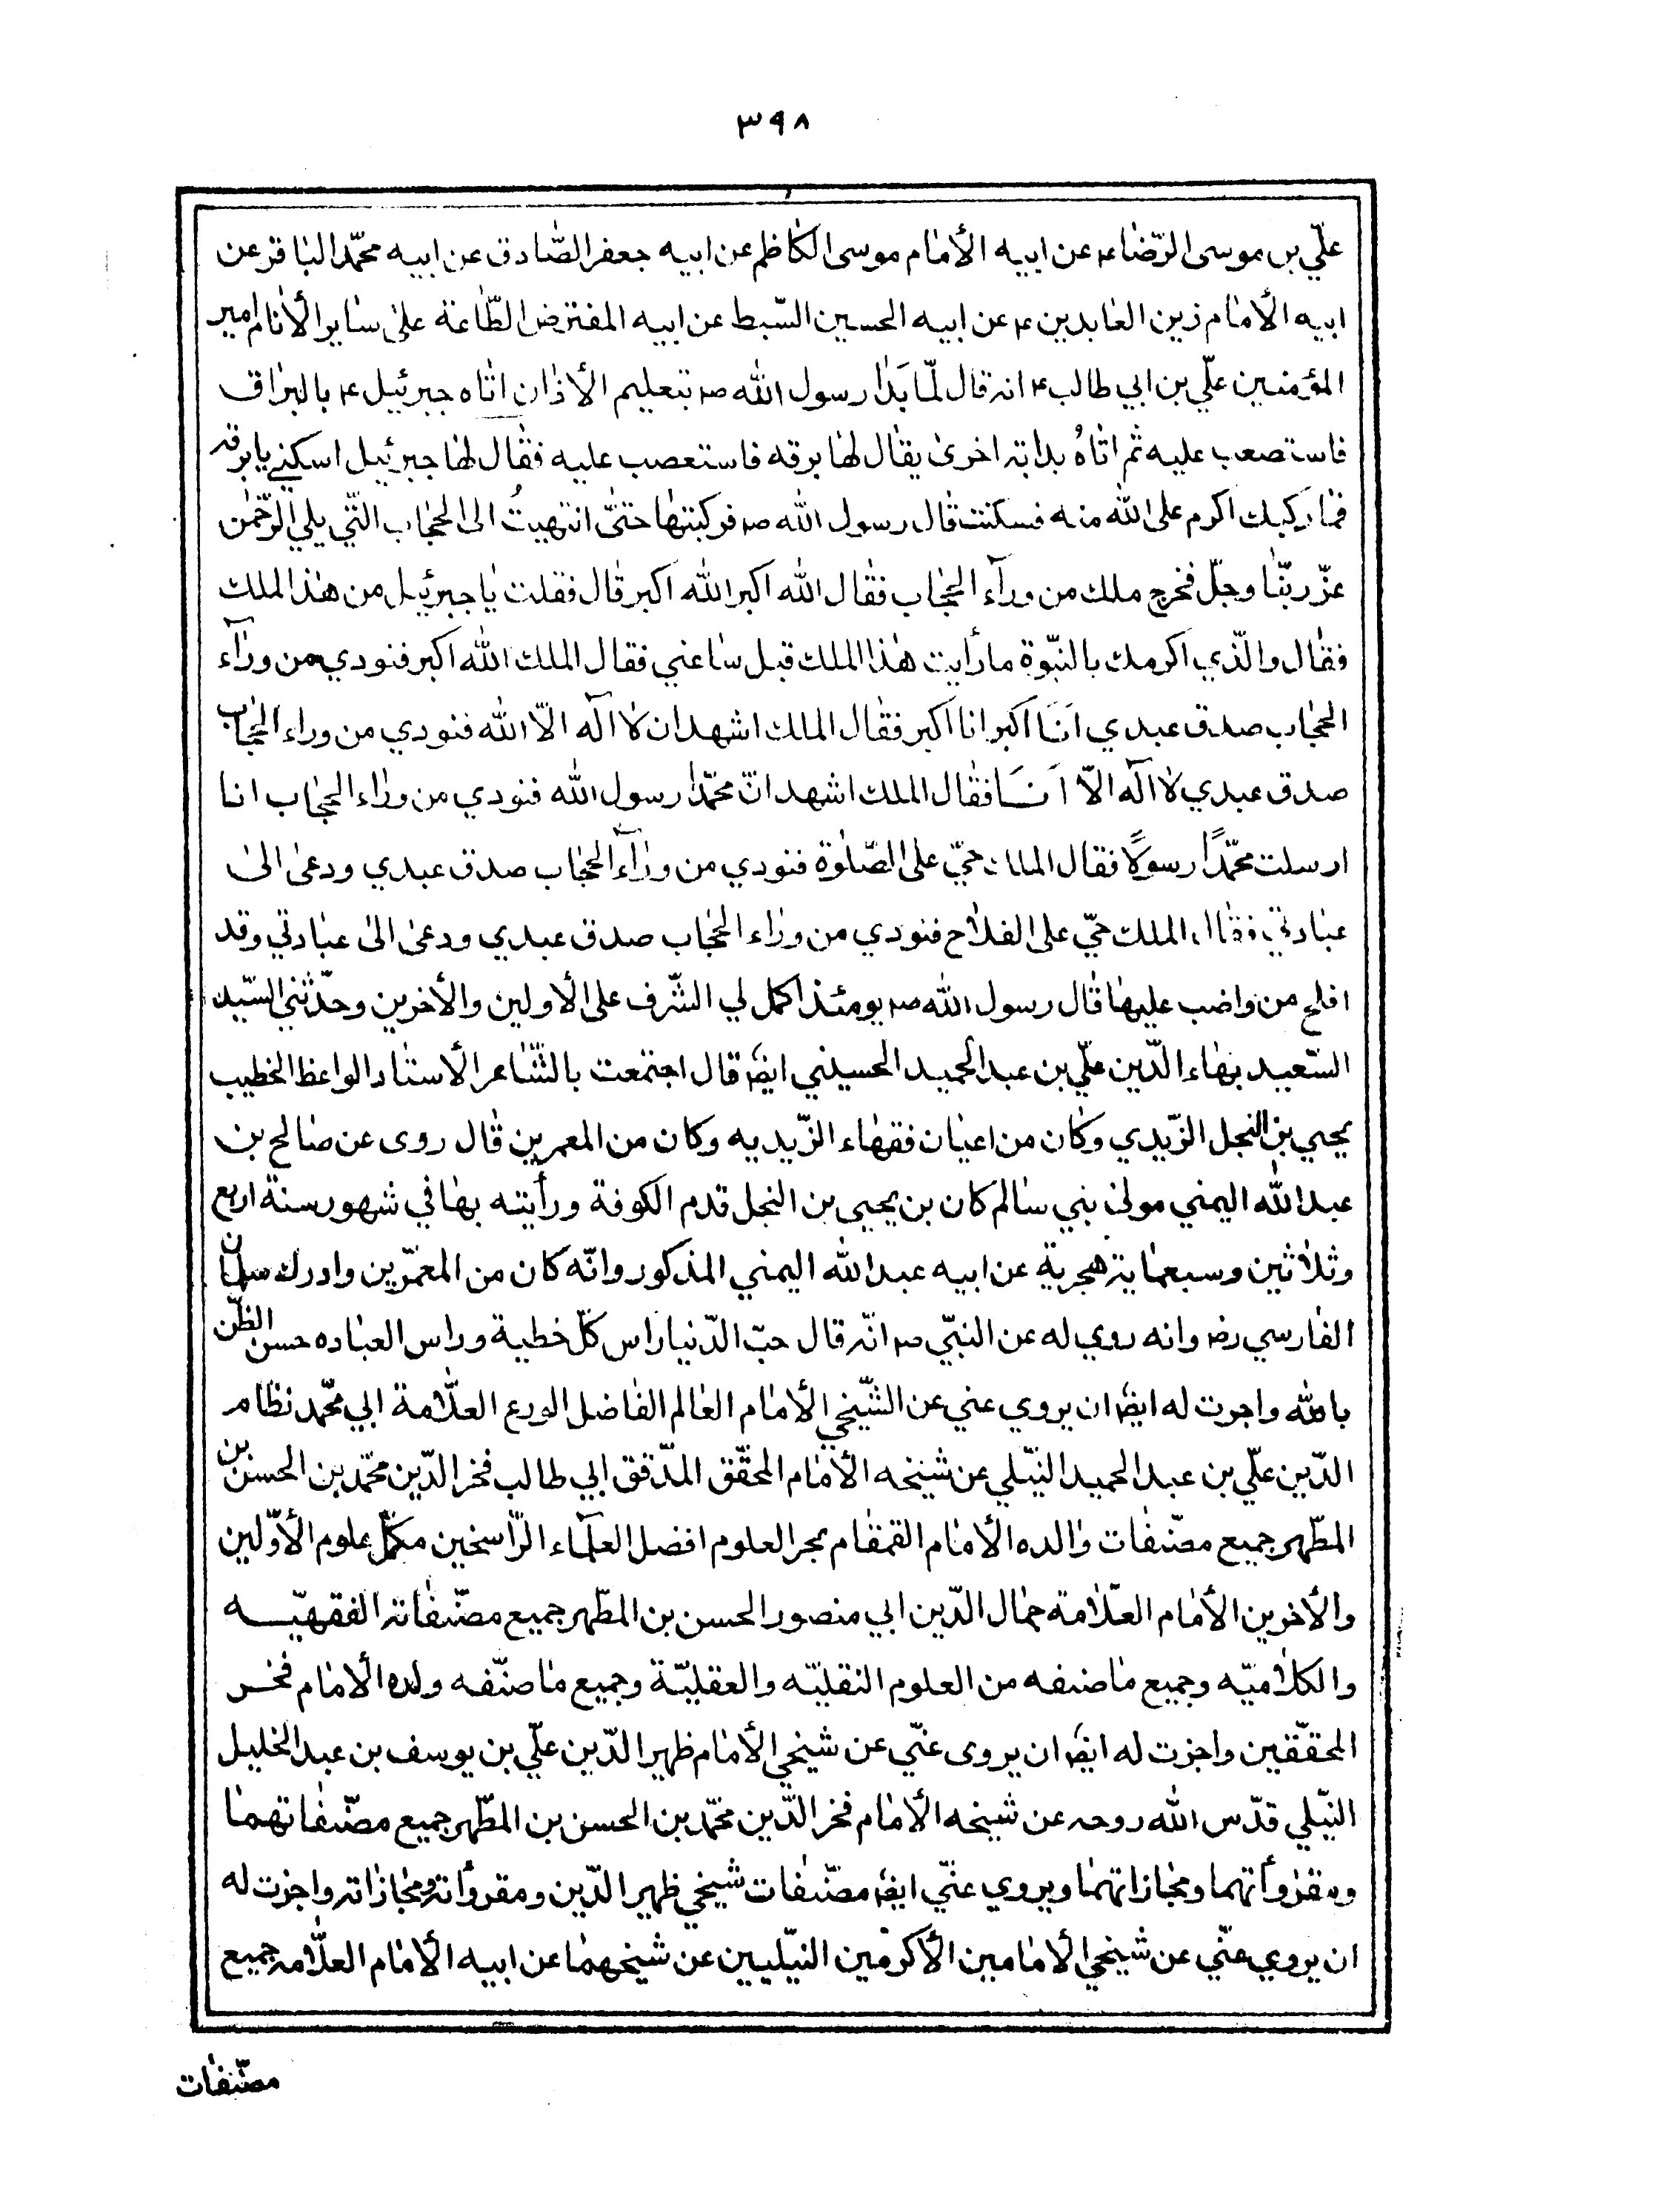 ٣٩٨
علّي بن موسى الرّضاء عن ابيه الأمام موسى الكاظم عن ابيه جعفر الصّادق عن ابيه محمّد الباقر عن
ابيه الأمام زين العابدين ع عن ابيه الحسين السّبط عن ابيه المفترض الطّاعة على ساير الأنام امير
المؤمنين علّي بن ابي طالب ع انه قال لمّا بَدَا رسول الله ص بتعليم الأذان اتاه جبرئيل ع بالبراق
فاستصعب عليه ثم اتاهُ بدابة اخرى يقال لها برقه فاستعصب عليه فقال لها جبرئيل اسكني يا برقه
فما ركبك اكرم على الله منه فسكنت قال رسول الله ص فركبتها حتىّ انتهيتُ الى الحجاب الّتي يلي الرّحمن
عزّ ربّنا وجلّ فخرج ملك من ورآء الحجاب فقال الله اكبر الله اكبر قال فقلت يا جبرئيل من هذا الملك
فقال والّذي اكرمك بالنبّوة ما رأيت هذا الملك قبل ساعتي فقال الملك الله اكبر فنودي من ورآء
الحجاب صدق عبدي اَنَا اكبر انا اكبر فقال الملك اشهد ان لا آله الاّ الله فنودي من وراء الحجاب
صدق عبدي لا اله الاّ اَنَا فقال الملك اشهد انّ محمّدا رسول الله فنودي من وراء الحجاب انا
ارسلت محمّدًا رسولًا فقال الملك حيّ على الصّلوة فنودي من ورآء الحجاب صدق عبدي ودعى الى
عبادتي فقال الملك حيّ على الفلاح فنودي من وراء الحجاب صدق عبدي ودعى الى عبادتي وقد
افلح من واضب عليها قال رسول الله ص يومئذ اكمل لي الشّرف على الأولين والأخرين وحدّثني السّيد
السّعيد بهاء الدّين علّي بن عبد الحميد الحسيني ايضا قال اجتمعت بالشّاعر الاستاد الواعظ الخطيب
يحيى بن النجل الزّيدي وكان من اعيان فقهاء الزّيديه وكان من المعمرين قال روى عن صالح بن
عبد الله اليمني مولى بني سالم كان بن يحيى بن النجل قدم الكوفة ورأيته بها في شهور سنة اربع
وثلاثين وسبعماية هجرية عن ابيه عبد الله اليمني المذكور وانّه كان من المعمّرين وادرك سلمان
الفارسي رض وانه روي له عن النبّي ص انّه قال حبّ الدّنيا راس كلّ خطية وراس العباده حسن الظّن
بالله واجرت له ايضا ان يروي عني عن الشّيخي الأمام العالم الفاضل الورع العلّامة ابي محّمد نظام
الدّين علّي بن عبد الحميد النيّلي عن شيخه الأمام المحقّق المدّقق ابي طالب فخر الدّين محمّد بن الحسن بن
المطّهر جميع مصّنفات والده الأمام القمقام بحر العلوم افضل العلمآء الرّاسخين مكمّل علوم الأوّلين
والأخرين الأمام العلّامة جمال الدّين ابي منصور الحسن بن المطّهر جميع مصّنفاته الفقهيّه
والكلاميّه وجميع ما صنفه من العلوم النقليّه والعقليّة وجميع ما صنّفه ولده الأمام فخر
المحقّقين واجزت له ايضا ان يروى عنّي عن شيخي الأمام ظهير الدّين علّي بن يوسف بن عبد الخليل
النيّلي قدّس الله روحه عن شيخه الأمام فخر الدّين محّمد بن الحسن بن المطّهر جميع مصّنفاتهما
ومقروأتهما ومجازاتهما ويروي عنّي ايضا مصّنفات شيخي ظهير الدّين ومقروأته ومجازاته واجزت له
ان يروي عنّي عن شيخي الأمامين الأكرمين النيّليين عن شيخهما عن ابيه الأمام العلّامه جميع
مصّنفات